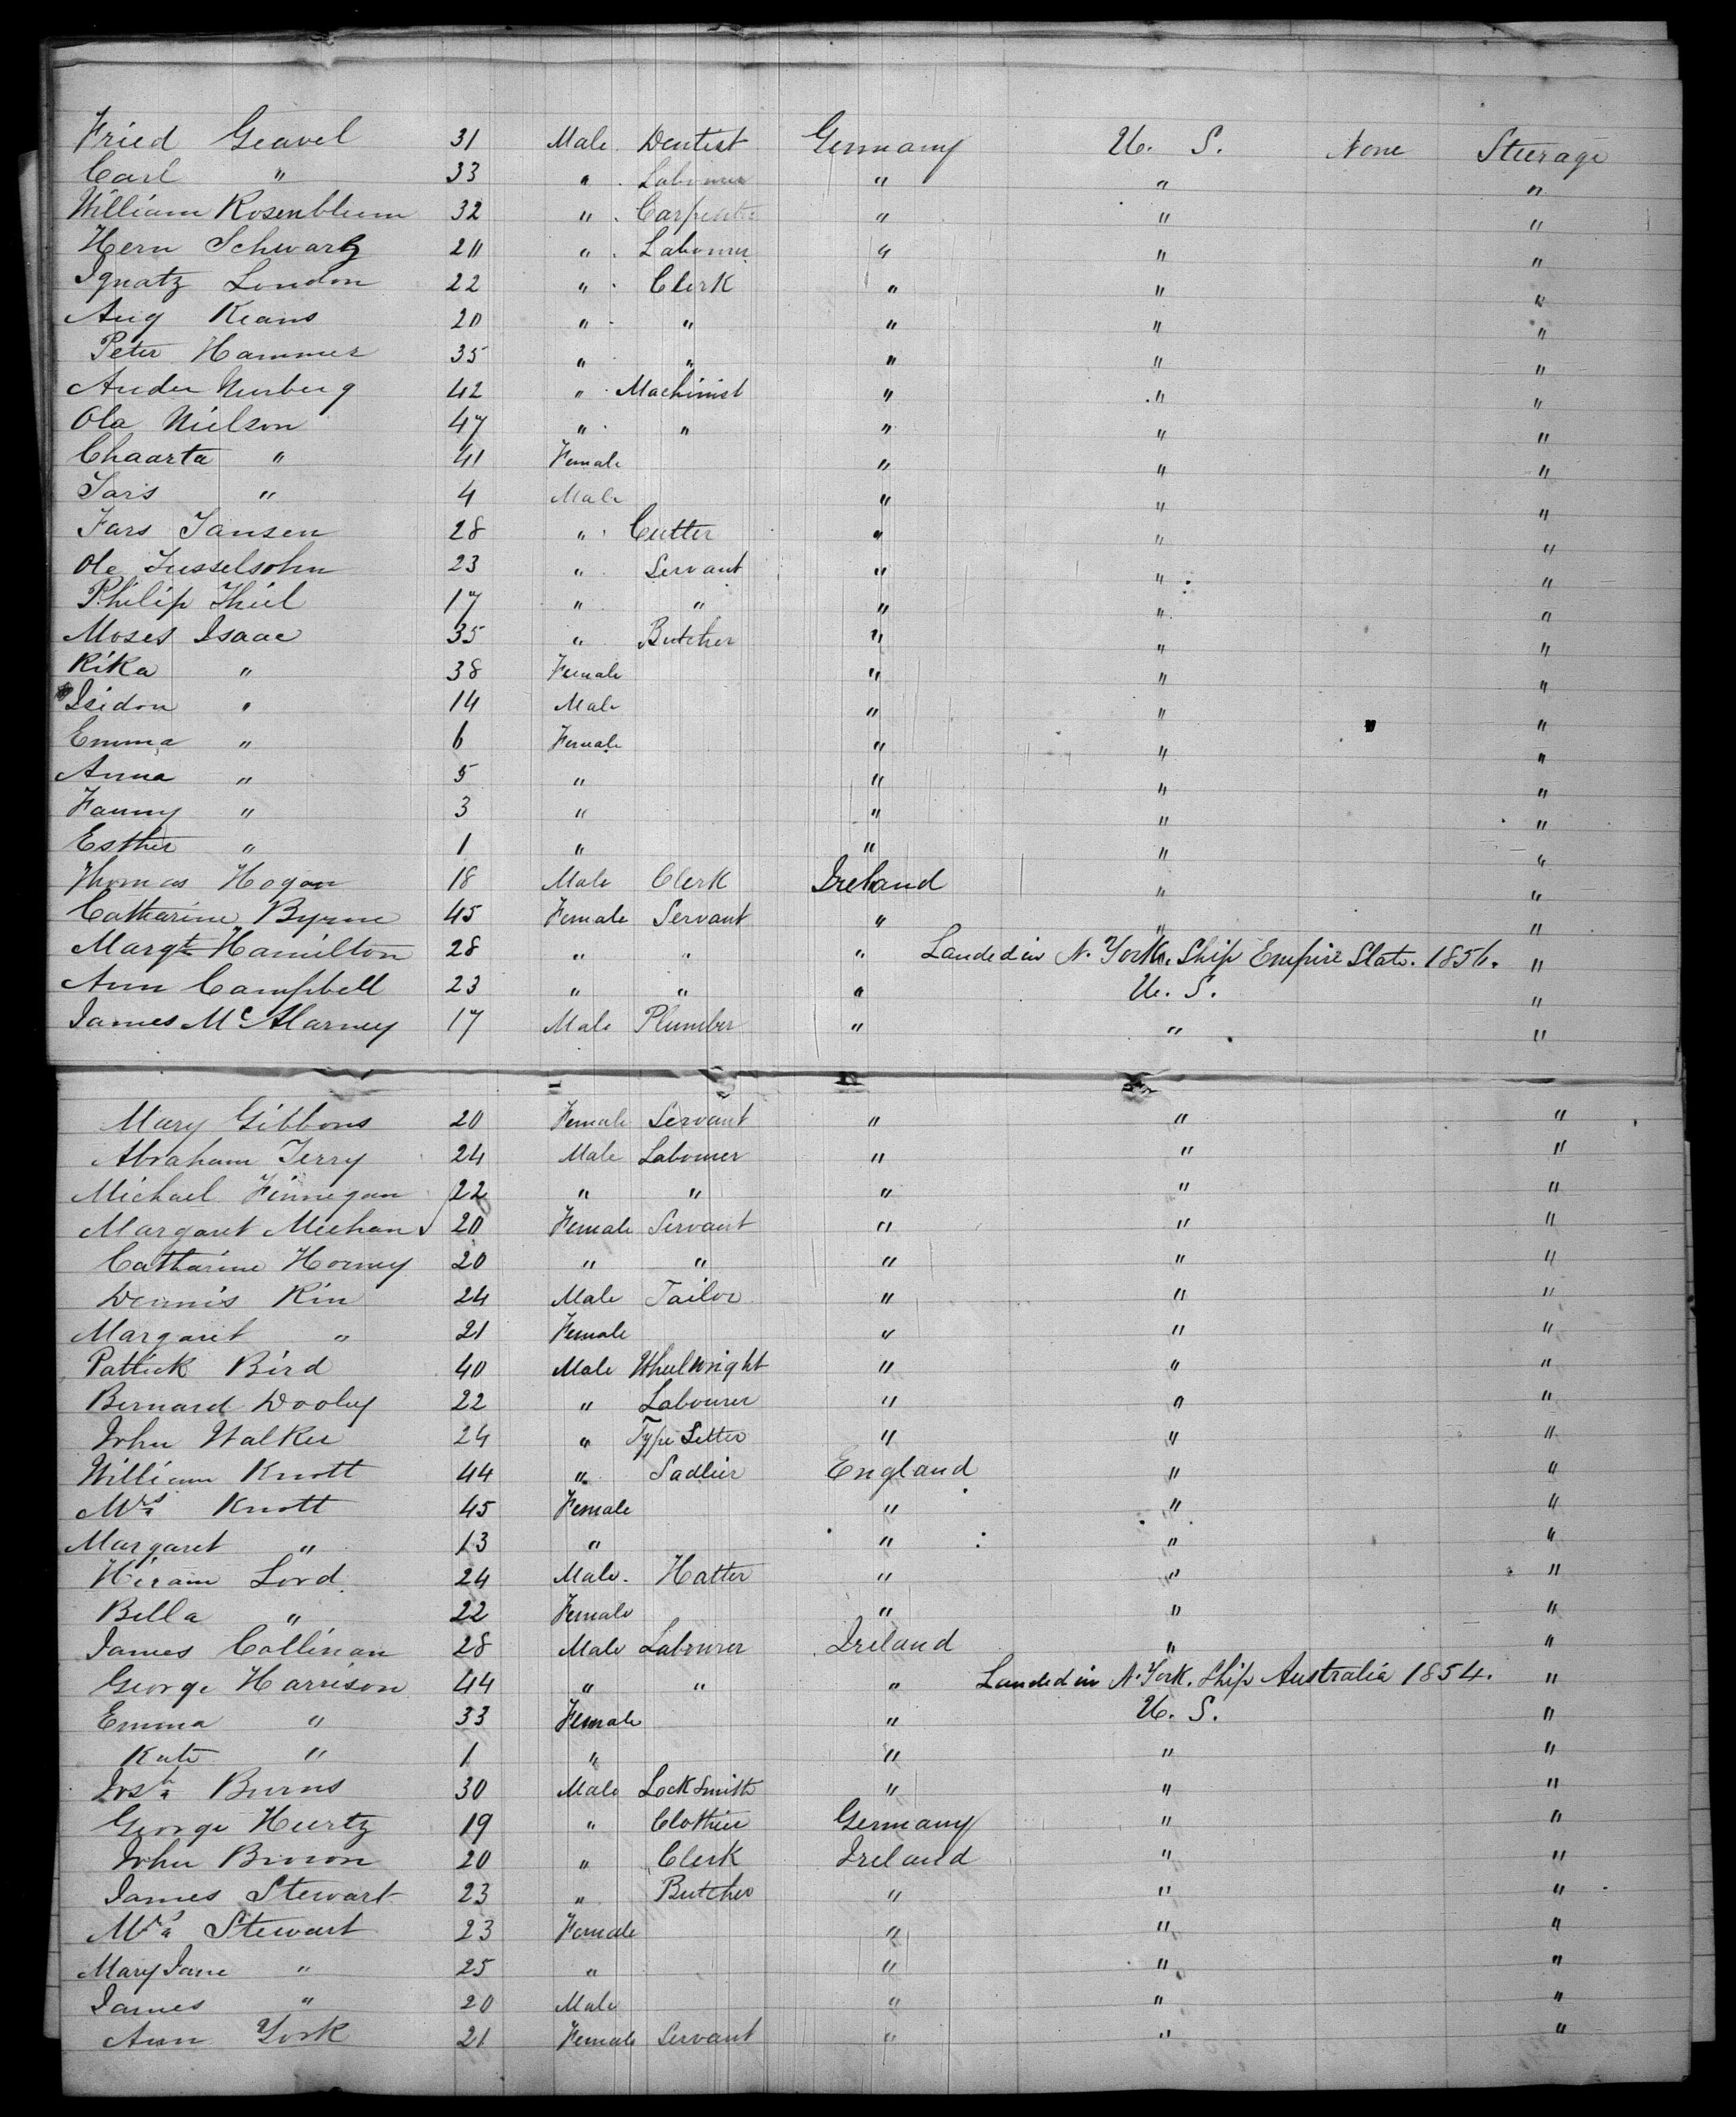 Fried Geavel 31 Male Dentist Germany U. S. None Steerage
Carl " 33 " Labourer " " "
William Rosenblum 32 " Carpenter " " "
Hern Schwartz 20 " Labourer " " "
Ignatz London 22 " Clerk " " "
Aug Keans 20 " " " " "
Peter Hammer 35 " " " " "
Ander Nurberg 42 " Machinist " " "
Ola Nielson 47 " " " " "
Chaarta " 41 Female " " "
Jars " 4 Male " " "
Jars Jansen 28 " Cutter " " "
Ole Jusselsohn 23 " Servant " " "
Philip Thiel 17 " " " " "
Moses Isaac 35 " Butcher " " "
Rika " 38 Female " " "
Isidor " 14 Male " " "
Emma " 6 Female " " " "
Anna " 5 " " " "
Fanny " 3 " " " "
Esther " 1 " " " "
Thomas Hogan 18 Male Clerk Ireland " "
Catharine Byrne 45 Female Servant " " "
Margt Hamilton 28 " " " Landed in N. York. Ship Empire State. 1856. "
Ann Campbell 23 " " " U. S. "
James McAlarney 17 Male Plumber " " "
Mary Gibbons 20 Female Servant " " "
Abraham Terry 24 Male Labourer " " "
Michael Finnegan 22 " " " " "
Margaret Meehan 20 Female Servant " " "
Catharine Horney 20 " " " " "
Dennis Kin 24 Male Tailor " " "
Margaret " 21 Female " " "
Patrick Bird 40 Male Wheelwright " " "
Bernard Dooley 22 " Labourer " " "
John Walker 24 " Type Setter " " "
William Knott 44 " Sadlier England " "
Mrs Knott 45 Female " " "
Margaret " 13 " " " "
Hiram Lord 24 Male. Hatter " " "
Bella " 22 Female " " "
James Collinan 28 Male Labourer Ireland " "
George Harrison 44 " " " Landed in N. York. Ship Australia 1854. "
Emma " 33 Female " U. S. "
Kate " 1 " " " "
Josh Burns 30 Male Lock Smith " " "
George Heurtz 19 " Clothier Germany " "
John Binion 20 " Clerk Ireland " "
James Stewart 23 " Butcher " " "
Mrs Stewart 23 Female " " "
Mary Jane " 25 " " " "
James " 20 Male " " "
Ann York 21 Female Servant " " "